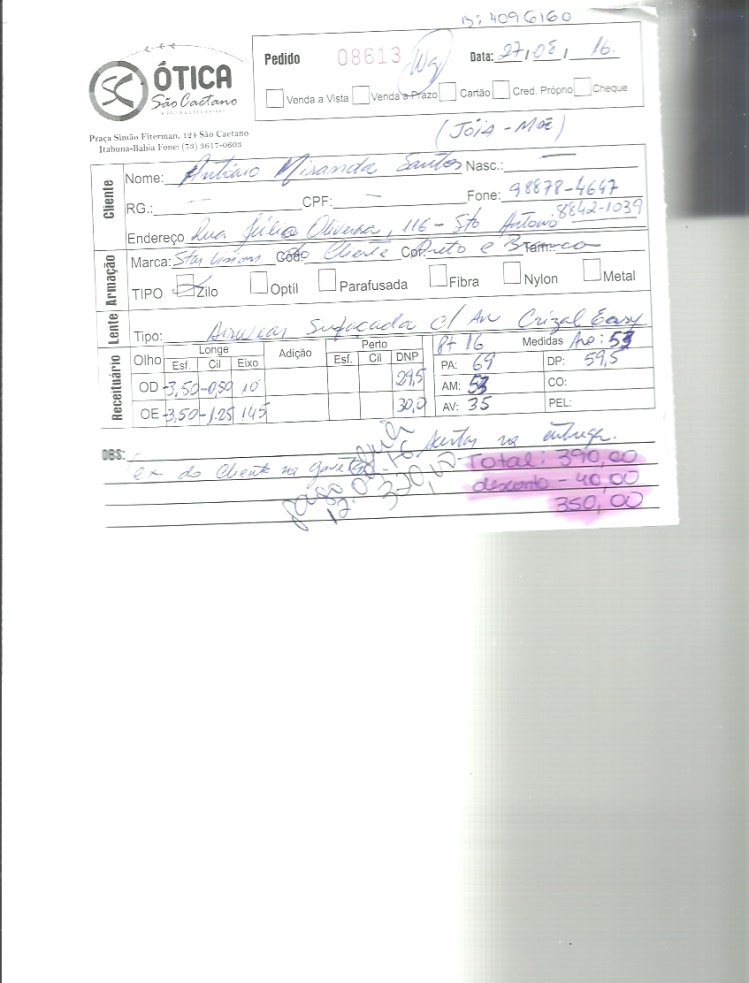 B: 4096160
ÓTICA
São Caetano
Praça Simão Fiterman, 124 São Caetano
Itabuna-Bahia Fone: (73) 3617-0603
Pedido 08613 Data: 27/08/16.
Venda a Vista Venda a Prazo Cartão Cred. Próprio Cheque
(JÓIA - MÃE)
Cliente
Nome: Antônio Miranda Santos Nasc.: —
RG.: — CPF: — Fone: 98878-4647
8842-1039
Endereço Rua Júlio Oliveira, 116 - Sto Antonio
Armação
Marca: Star Visions Cód: do Cliente Cor: Preto e Branco Tam.:
TIPO Zilo Optil Parafusada Fibra Nylon Metal
Lente
Tipo: Airwear Surfaçada c/ AR Crizal Easy
Receituário
Olho Longe Adição Perto Pt 16 Medidas Aro: 53
Esf. Cil Eixo Esf. Cil DNP PA: 69 DP: 59,5
OD -3,50 -0,50 10 29,5 AM: 53 CO:
OE -3,50 -1.25 145 30,0 AV: 35 PEL:
OBS: na entrega.
do Cliente na
Total: 390,00
desconto - 40,00
350,00
pago